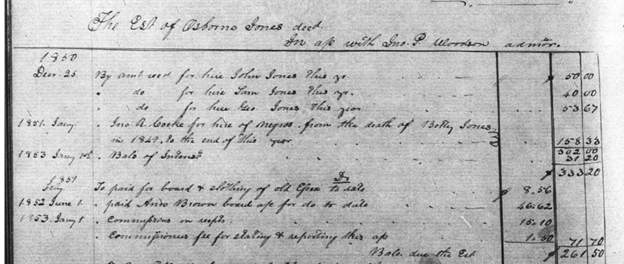 The Est of Osborne Jones decd
In a/c with Jno. P. Woodson admor.
1850
Decr. 25. By amt recd for hire John Jones this yr. $ 50 00
" do for hire Sam Jones this yr. 40 00
" do for hire Geo Jones this year 53 67
1851. Jany " Jno. A. Cocke for hire of negros from the death of Betty Jones
in 1849 to the end of this year 158 33
302 00
1853 Jany 1st " Bals of Interest 31 20
Dr 333 20
1851
Jany To paid for board & clothing of old to date $ 8.56
1852 June 1. " paid Brown board a/c for do to date 46.62
1853 Jany 1 " Commissions on recpts 15.10
" Commissioners fee for stating & reporting this a/c 1.50 71 70
Bals. due the Est $ 261 50